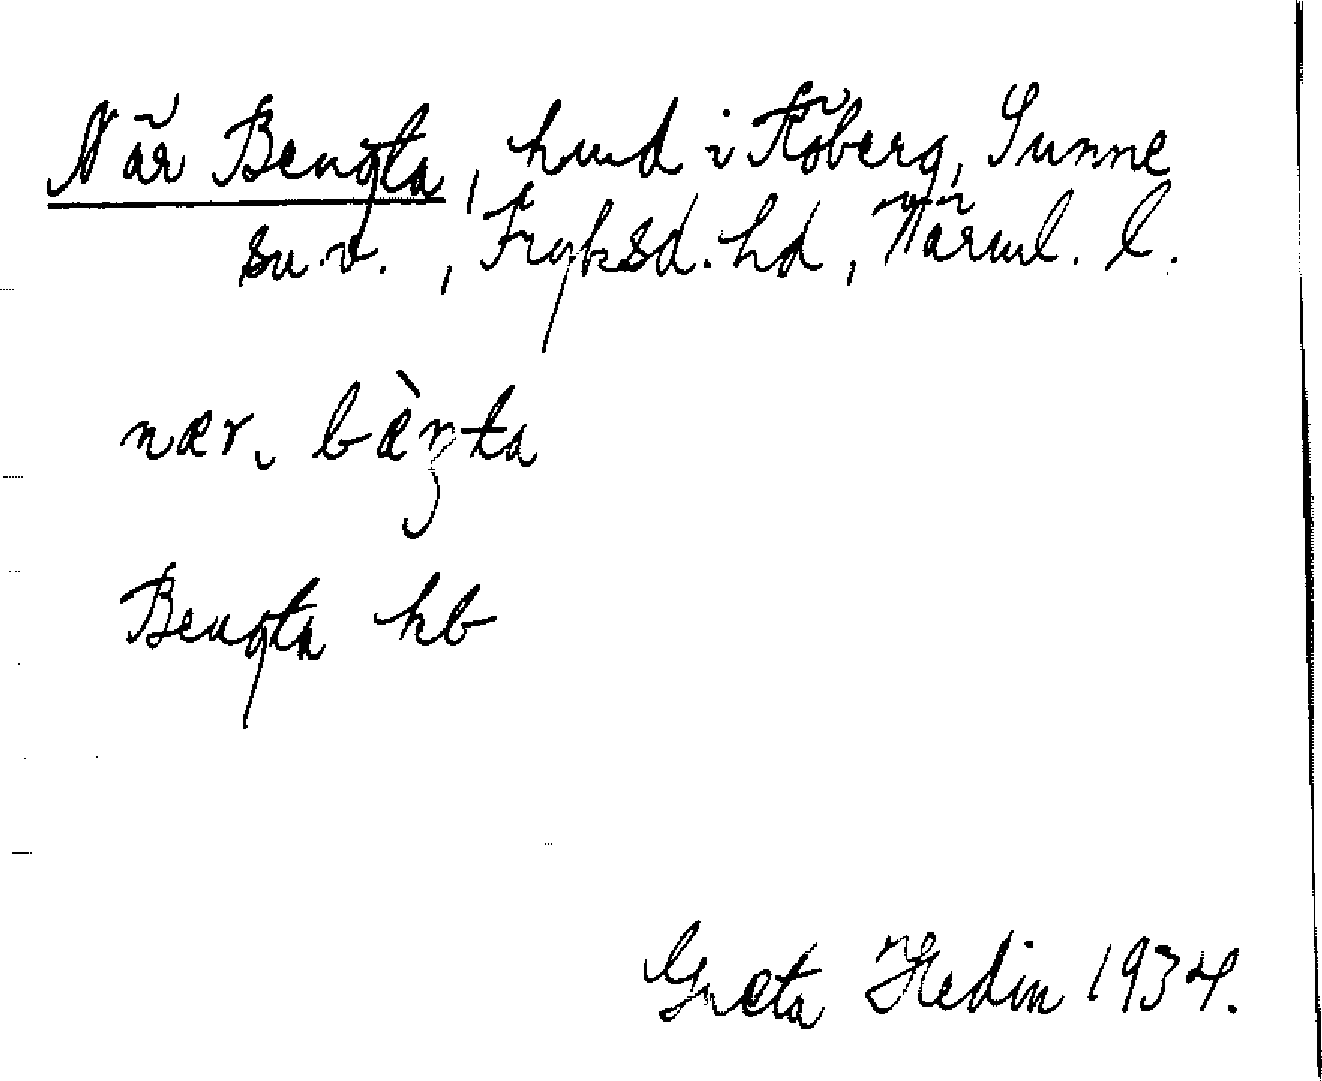 När Bengta, hmd i Råberg, Sunne
sn.v., Fryksd. hd, Värml. l.
nær. bæ̀ŋta
Bengta hb
Greta Hedin 1934.